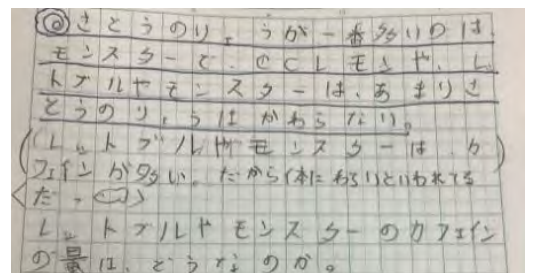 ◎さとうのりょうが一番多いのは、
モンスターで、CCレモンや、レッ
トブルやモンスターは、あまりさ
とうのりょうはかわらない。
(レットブルやモンスターは、カ
フェインが多い。だから体にわるいといわれてる
た。
レットブルやモンスターのカフェイン
の量は、どうなのか。